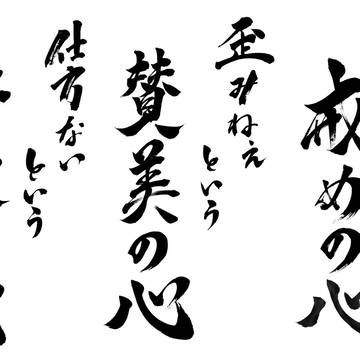 戒めの心
歪みねえ
という
賛美の心
仕方ない
という